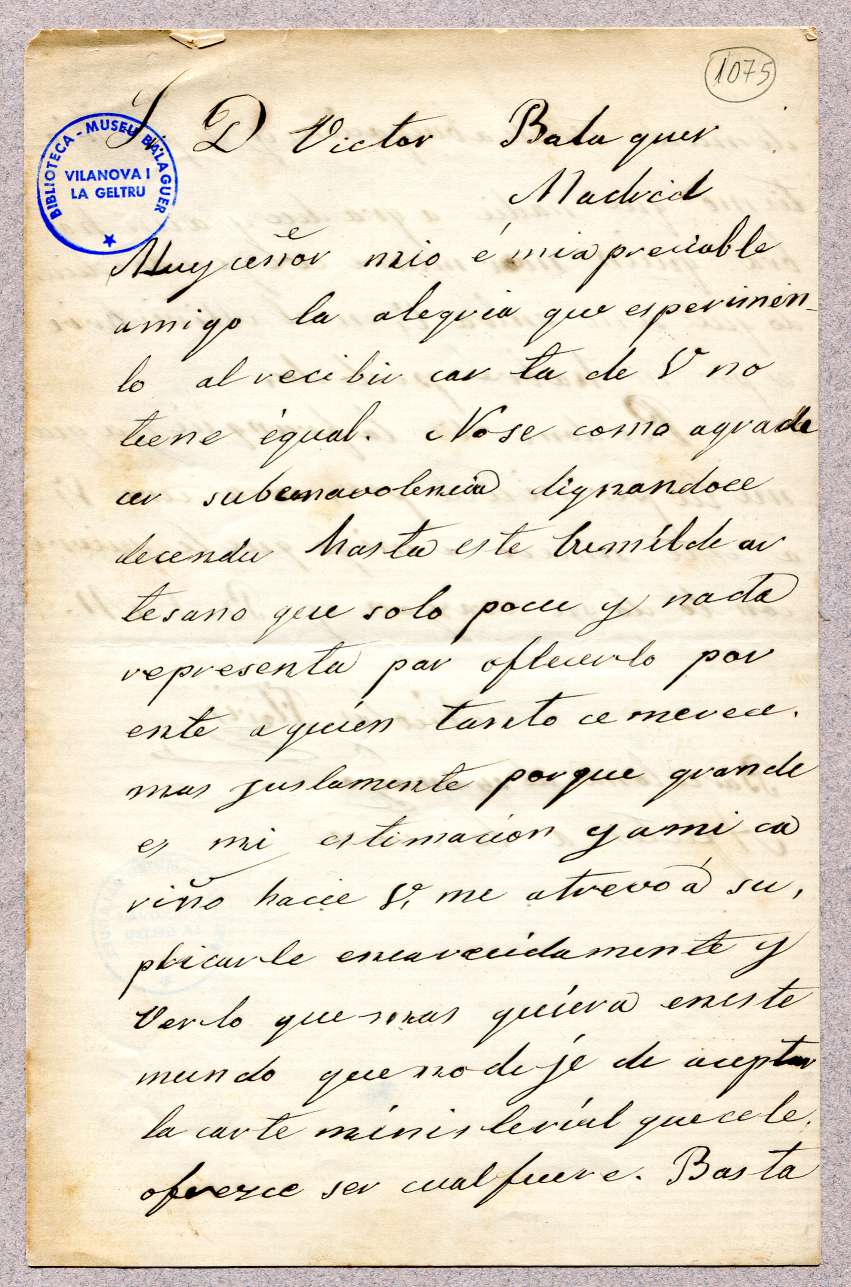 1075
S. D Victor Balaguer
Madrid
BIBLIOTECA - MUSEU BALAGUER
VILANOVA I
LA GELTRU
Muy ceñor mio é mi apreciable
amigo la alegria que esperimen-
to al recibir carta de V no
tiene égual. No se como agrade
cer su benavolencia dignandoce
decender hasta este humilde ar
tesano que solo poco y nada
representa par ofrecerlo por
ente a quien tanto ce merece.
mas justamente porque grande
es mi estimacion y a mi ca
riño hacie V, me atrevo á su,
plicarle encarecidamente y
Ver lo que mas quiera en este
mundo que no deje de aceptar
la carte ministerial que ce le,
ofrezce ser cual fuere. Basta